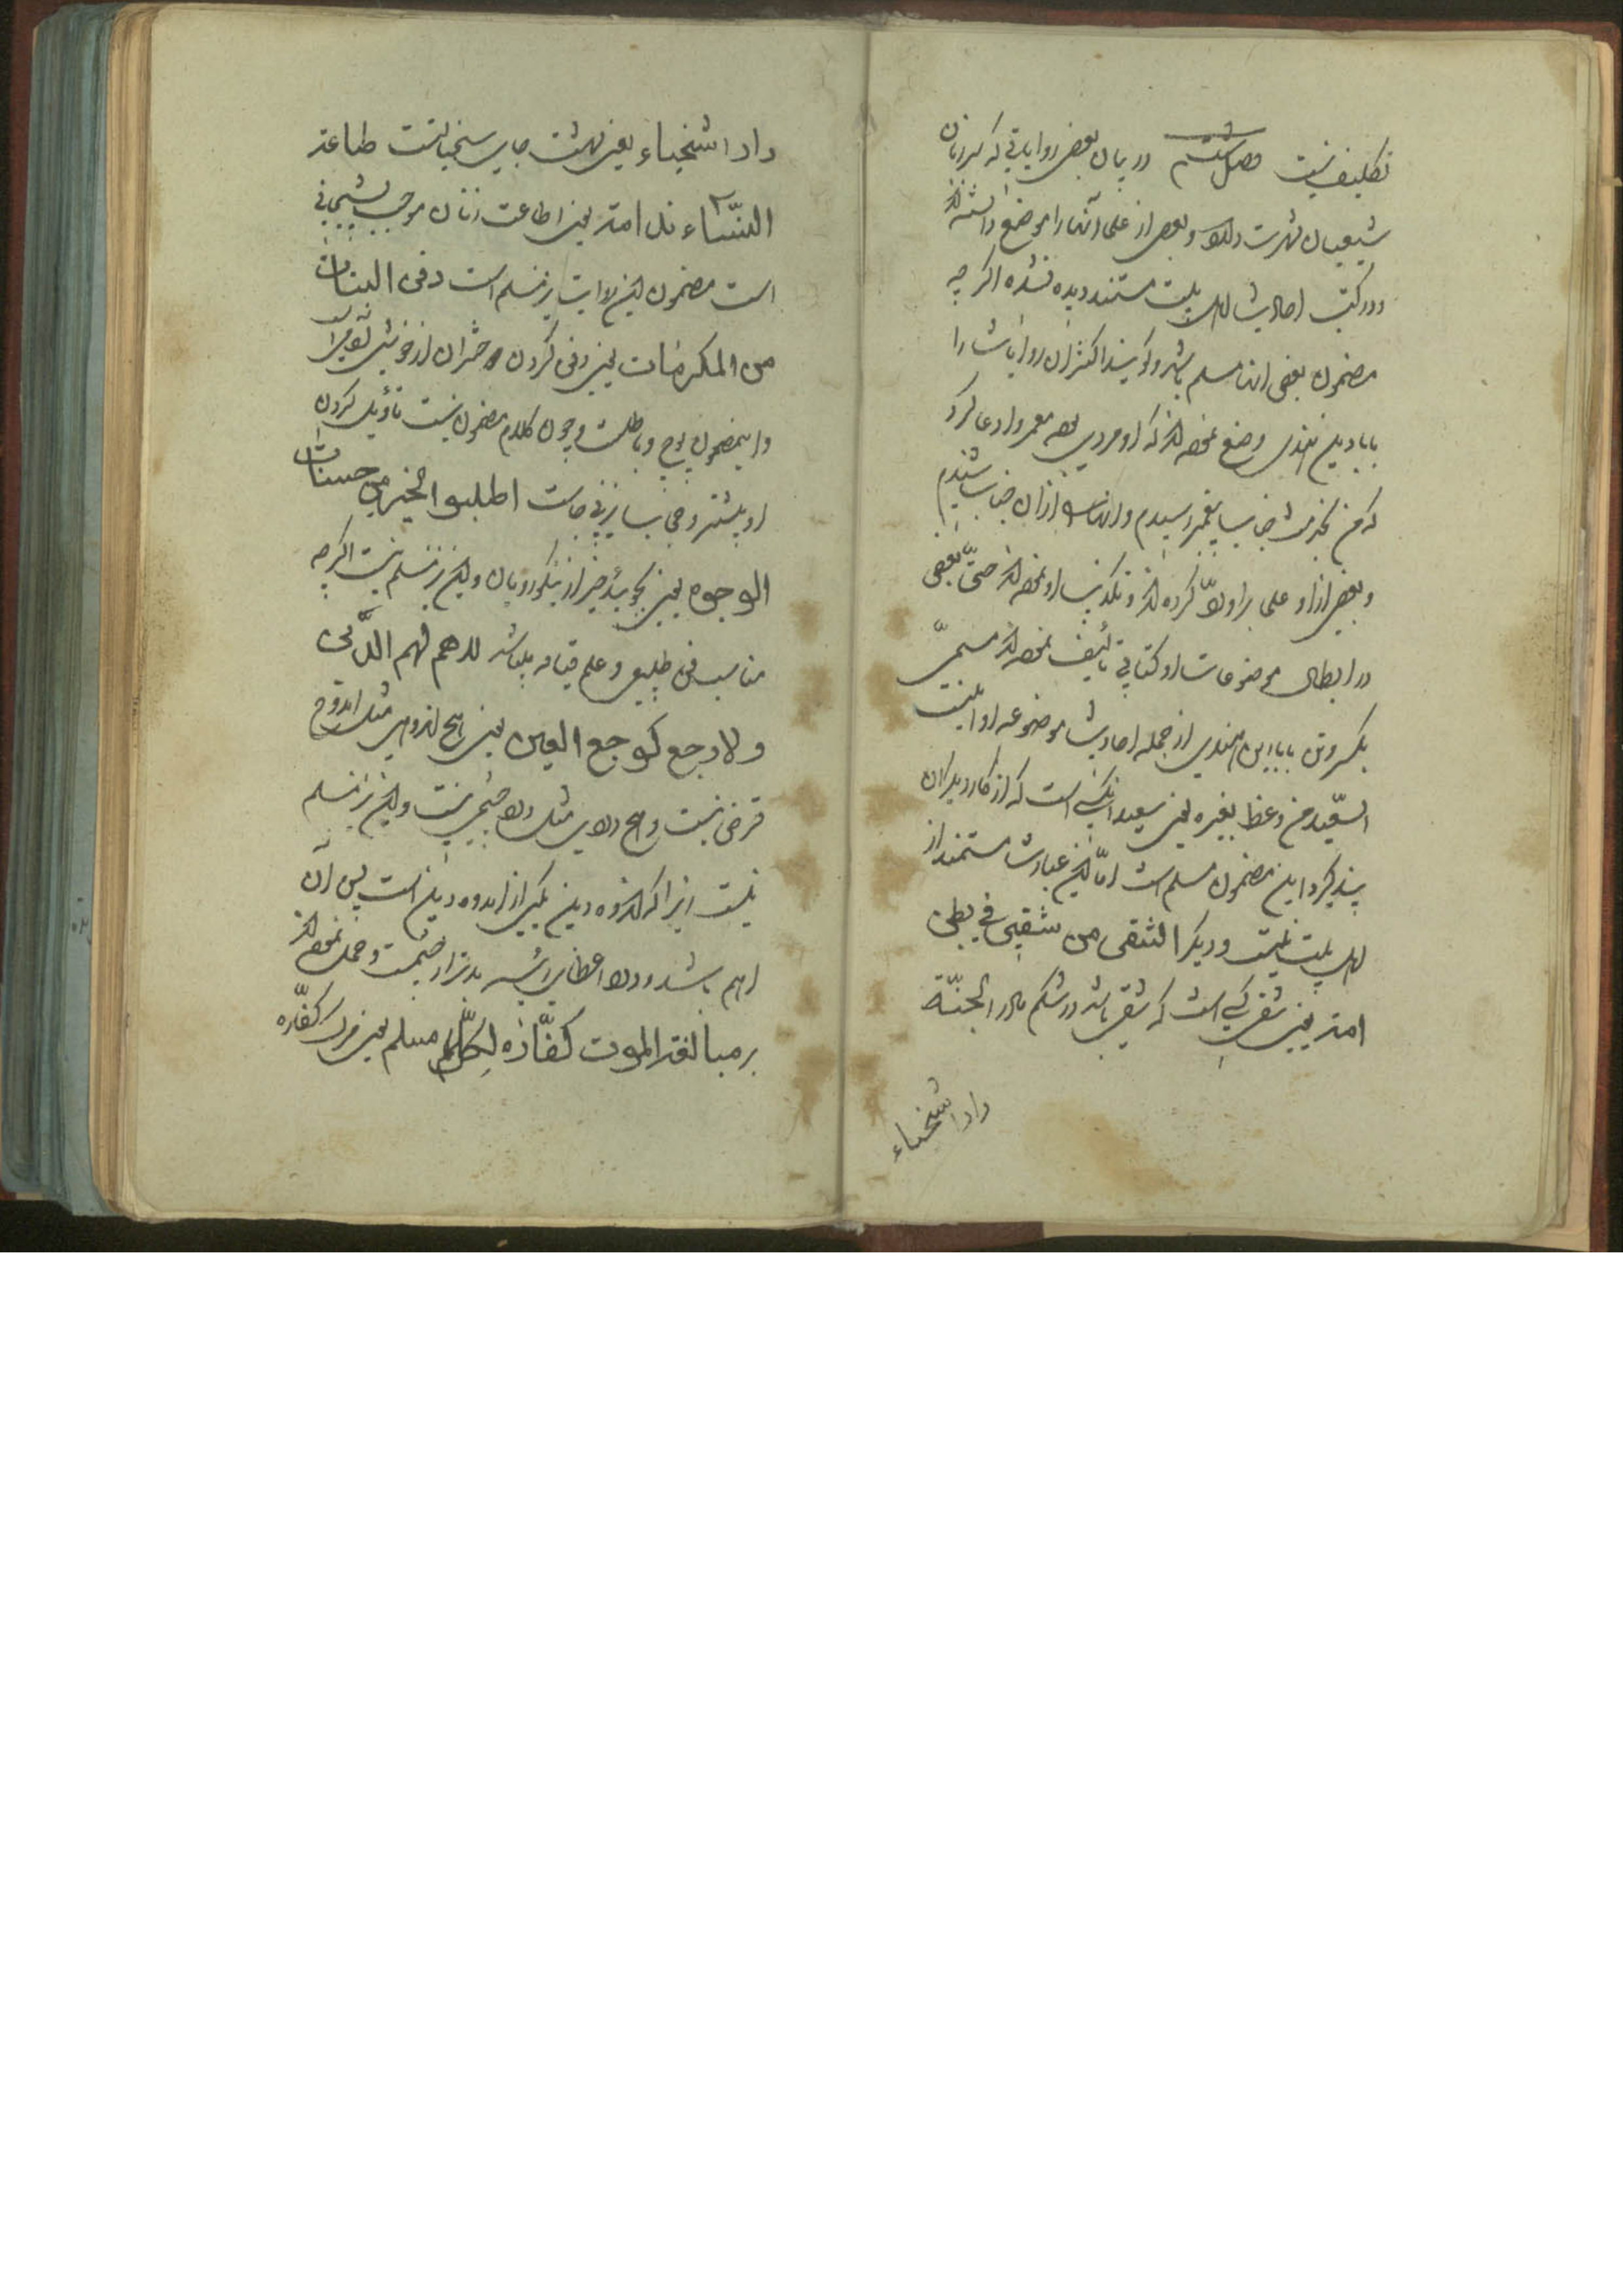 تکلیف نیست فصل ششم در بیان بعضی روایاتی که بر زبان
شیعیان شهرت دارد و بعضی از علما آنها را موضوع دانسته‌اند
و در کتب احادیث اهل بیت مستند دیده نشده اگر چه
مضمون بعضی آنها مسلم باشد و گویند اکثر آن روایات را
بابا رین هندی وضع نموده که او مردی بوده معمر و ادعا کرد
که من بخدمت جناب پیغمبر رسیدم و اینها را از آن جناب شنیدم
و بعضی از علما بر او رد کرده‌اند و تکذیب او نموده‌اند حتی بعضی
در ابطال موضوعات او کتابی تألیف نموده‌اند مسمی
بکسر وثن بابا رین هندی از جمله احادیث موضوعه او اینست
السعید من وعظ بغیره یعنی سعید آنکسی است که از کار دیگران
پند گیرد این مضمون مسلم است اما این عبارت مستند از
اهل بیت نیست و دیگر الشقی من شقی فی بطن
امه یعنی شقی کسی است که شقی باشد در شکم مادر الجنّة
دار اسخیاء
دار اسخیاء یعنی بهشت جای سخیانست طاعة
النّساء ندامة یعنی اطاعت زنان موجب پشیمانی
است مضمون این روایت نیز مسلم است دفن البنات
من المکرمات یعنی دفن کردن دختران از خوبی
و این مضمون پوچ و باطلست و چون کلام مضمون نیست تأویل کردن
او بیشتر و جنابه نیز بیجاست اطلبوا الخیر من حسنات
الوجوه یعنی بجوئید خیر از نیکورویان و این نیز مسلم نیست اگر چه
مناسب فن طبیعی و علم قیافه باشد لا هم کهم الدّین
و لا وجع کوجع العین یعنی هیچ اندوهی مثل اندوه
قرض نیست و هیچ دردی مثل درد چشم نیست و این نیز مسلم
نیست زیرا که اندوه دین بدتر از اندوه دین است پس آن
اهم باشد و درد اعضای رئیسه بدتر از چشمست و حمل نموده‌اند
بر مبالغه الموت کفّارة لکلّ مسلم یعنی مرگ کفّاره